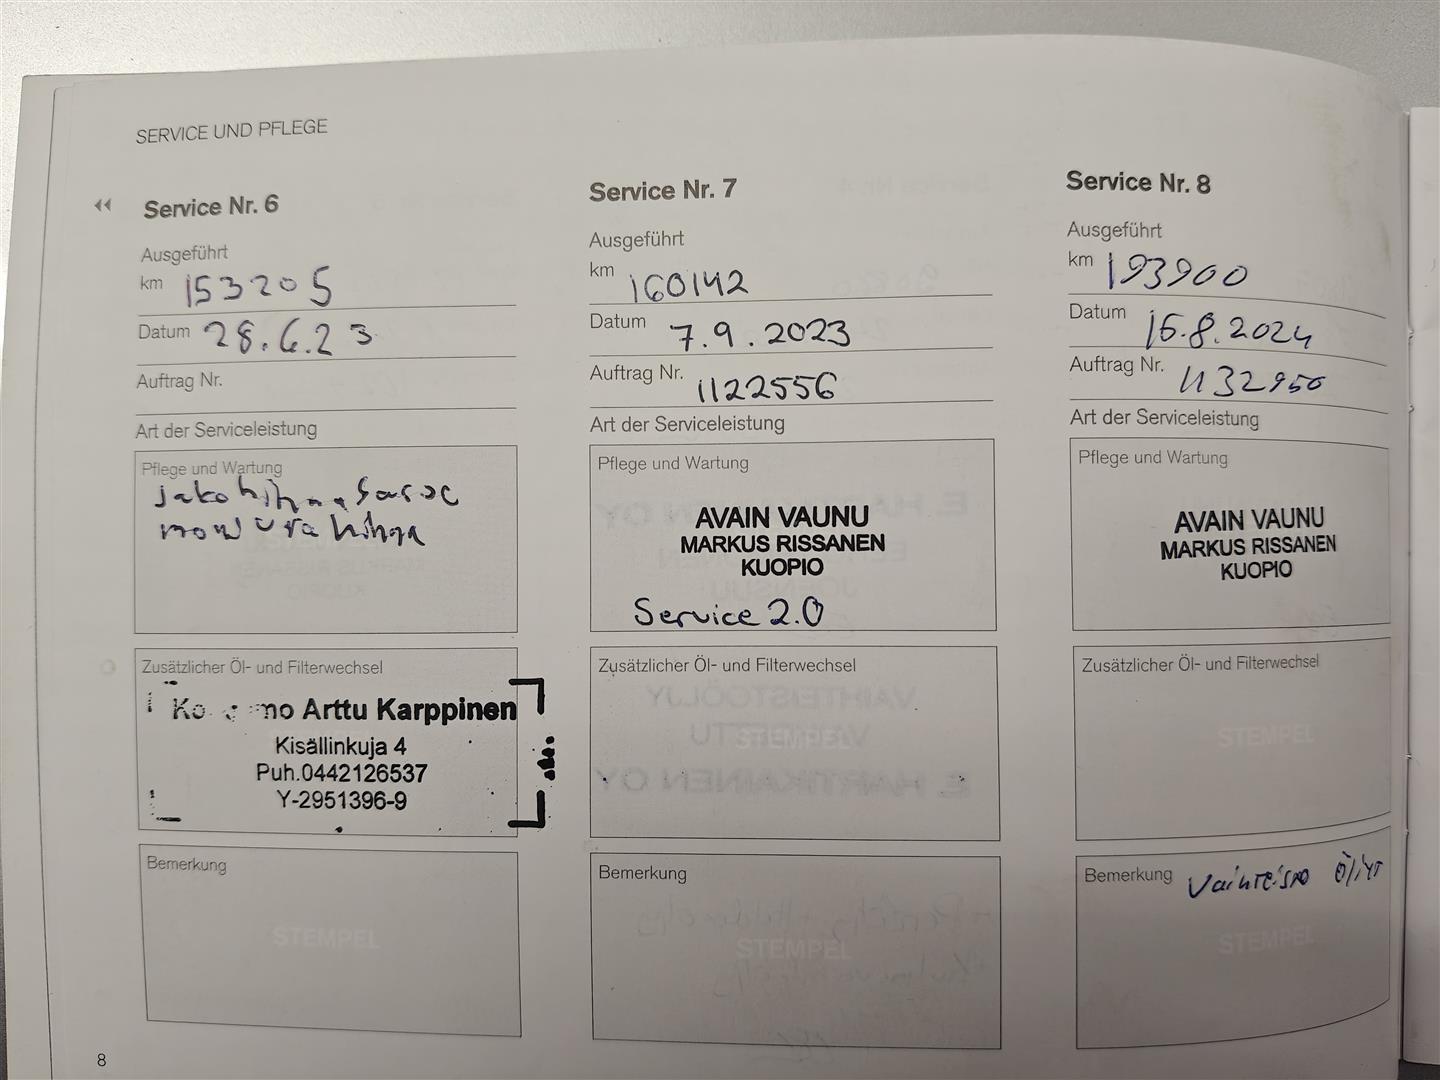 SERVICE UND PFLEGE
Service Nr. 6
Ausgeführt
km 153205
Datum 28.6.23
Auftrag Nr.
Art der Serviceleistung
Pflege und Wartung
jakohihna
hihna
Zusätzlicher Öl- und Filterwechsel
Arttu Karppinen
Kisällinkuja 4
Puh.0442126537
Y-2951396-9
Bemerkung
STEMPEL
Service Nr. 7
Ausgeführt
km 160142
Datum 7.9.2023
Auftrag Nr. 1122556
Art der Serviceleistung
Pflege und Wartung
AVAIN VAUNU
MARKUS RISSANEN
KUOPIO
Service 2.0
Zusätzlicher Öl- und Filterwechsel
STEMPEL
Bemerkung
STEMPEL
Service Nr. 8
Ausgeführt
km 193900
Datum 16.8.2024
Auftrag Nr. 1132950
Art der Serviceleistung
Pflege und Wartung
AVAIN VAUNU
MARKUS RISSANEN
KUOPIO
Zusätzlicher Öl- und Filterwechsel
STEMPEL
Bemerkung Vaihteisto Öljyt
STEMPEL
8